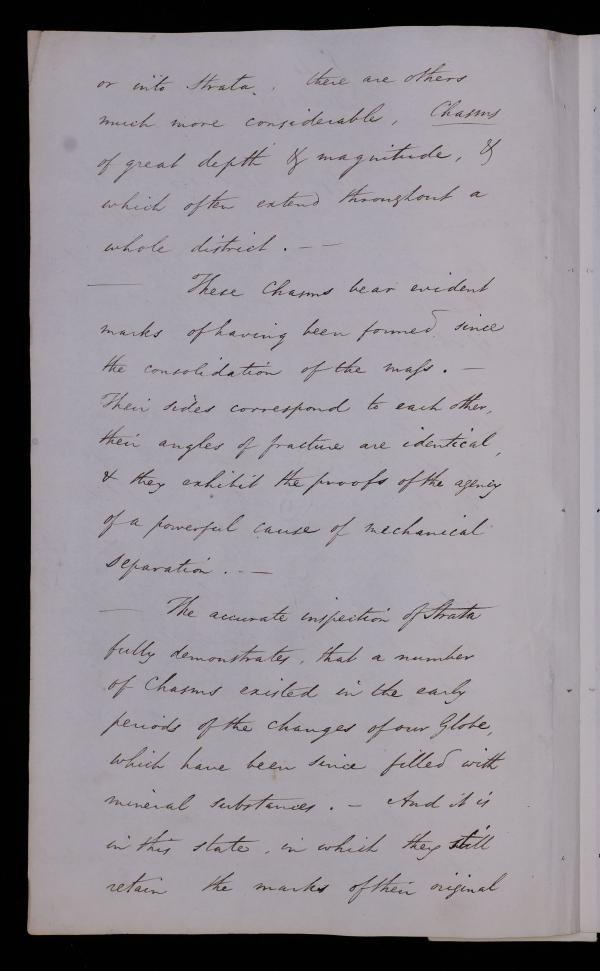 or into Strata. there are others
much more considerable, Chasms
of great depth & magnitude, &
which often extend throughout a
whole district. - -
— These Chasms bear evident
marks of having been formed since
the consolidation of the mass. -
Their sides correspond to each other,
their angles of fracture are identical,
& they exhibit the proofs of the agency
of a powerful cause of mechanical
separation. - -
— The accurate inspection of Strata
fully demonstrates, that a number
of Chasms existed in the early
periods of the changes of our Globe,
which have been since filled with
mineral substances. - And it is
in this state, in which they still
retain the marks of their original